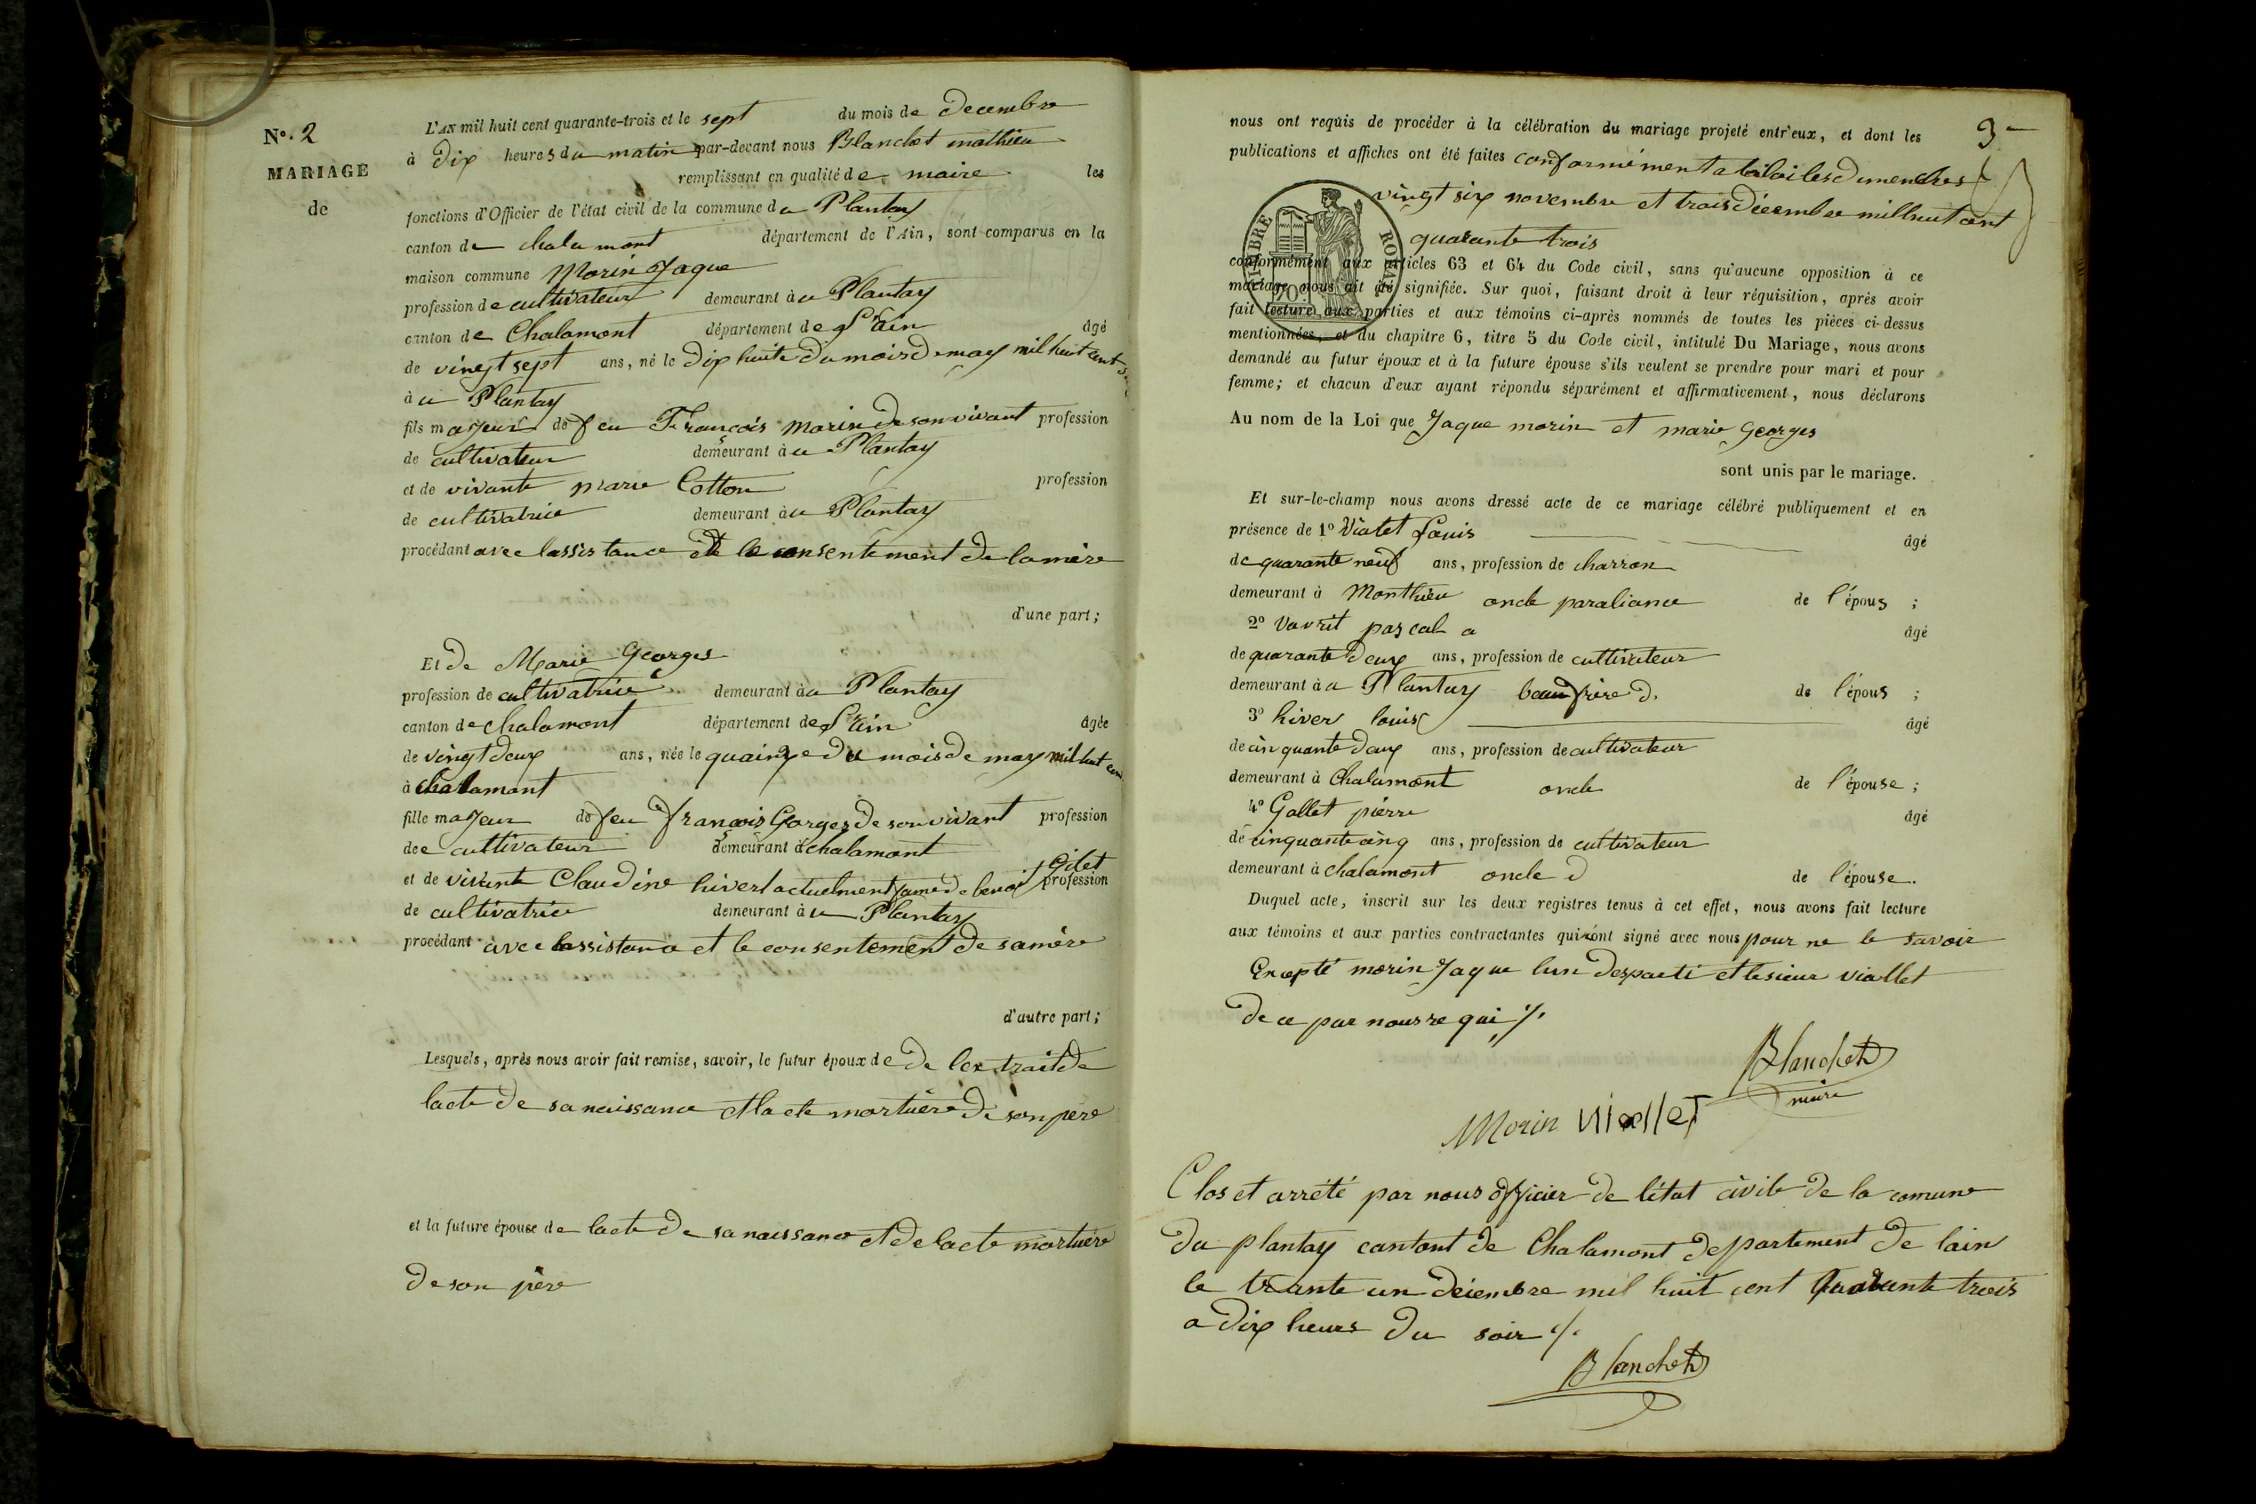 N°. 2
MARIAGE
de
L'AN mil huit cent quarante-trois et le sept du mois de decembre
à dix heures du matin par-devant nous Blanchet mathieu
remplissant en qualité de maire les
fonctions d'Officier de l'état civil de la commune du Plantay
canton de chala mont département de l'Ain, sont comparus en la
maison commune Morin Jaque
profession de cultivateur demeurant à u Plantay
canton de Chalamont département de l'ain âgé
de vingt sept ans, né le dix huite du mois de may mil huit cent
à u Plantay
fils majeur de feu François Morin de son vivant profession
de cultivateur demeurant à u Plantay
et de vivante marie Cotton profession
de cultivatrice demeurant à u Plantay
procédant avec lassistance et le consentement de la mère
d'une part;
Et de Marie Georges
profession de cultivatrice demeurant à u Plantay
canton de chalamont département de l'ain âgée
de vingt deux ans, née le quainze du mois de may mil huit cen
à chalamont
fille majeur de feu françois Georges de son vivant profession
de cultivateur demeurant à chalamont
et de vivante Claudine hivert actuelment fame de benoit Gilet profession
de cultivatrice demeurant à u Plantay
procédant avec lassistance et le consentement de sa mère
d'autre part;
Lesquels, après nous avoir fait remise, savoir, le futur époux de de lextrait de
lacte de sa naissance et lacte mortuère de son père
et la future épouse de lacte de sa naissance et de lacte mortuère
de son père
3
nous ont requis de procéder à la célébration du mariage projeté entr'eux, et dont les
publications et affiches ont été faites conformément a la loi les dimenches
vingt six novembre et trois décembre mil huit cent
quarante trois
TIMBRE ROYAL
conformément aux articles 63 et 64 du Code civil, sans qu'aucune opposition à ce
mariage nous ait été signifiée. Sur quoi, faisant droit à leur réquisition, après avoir
fait lecture aux parties et aux témoins ci-après nommés de toutes les pièces ci-dessus
mentionnées, et du chapitre 6, titre 5 du Code civil, intitulé Du Mariage, nous avons
demandé au futur époux et à la future épouse s'ils veulent se prendre pour mari et pour
femme; et chacun d'eux ayant répondu séparément et affirmativement, nous déclarons
Au nom de la Loi que Jaque morin et marie Georges
sont unis par le mariage.
Et sur-le-champ nous avons dressé acte de ce mariage célébré publiquement et en
présence de 1° Vialet Louis âgé
de quarante neuf ans, profession de charron
demeurant à Monthieu oncle paraliance de l'épous ;
2° Vavrit pascal a âgé
de quarante deux ans, profession de cultivateur
demeurant à u Plantay beaufrère d. de l'épous ;
3° hiver louis âgé
de cinquante deux ans, profession de cultivateur
demeurant à Chalamont oncle de l'épouse ;
4° Gallet pierre âgé
de cinquante cinq ans, profession de cultivateur
demeurant à chalamont oncle d de l'épouse.
Duquel acte, inscrit sur les deux registres tenus à cet effet, nous avons fait lecture
aux témoins et aux parties contractantes qui n'ont signé avec nous pour ne le savoir
Excepté morin Jaque lun desparti et lesieur viallet
de ce par nous re qui
Blanchet
maire
Morin viallet
Clos et arrété par nous officier de létat civile de la comune
du plantay cantont de Chalamont departement de lain
le trante un décembre mil huit cent quarante trois
a dix heures du soir
Blanchet